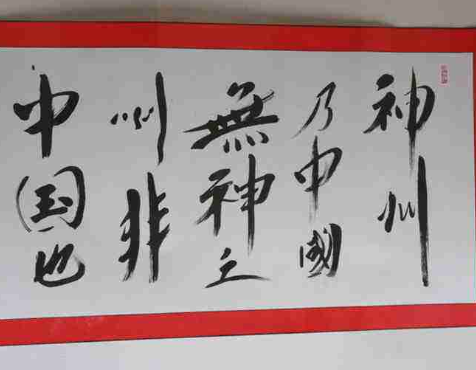 神州
乃中國
無神之
州非
中国也